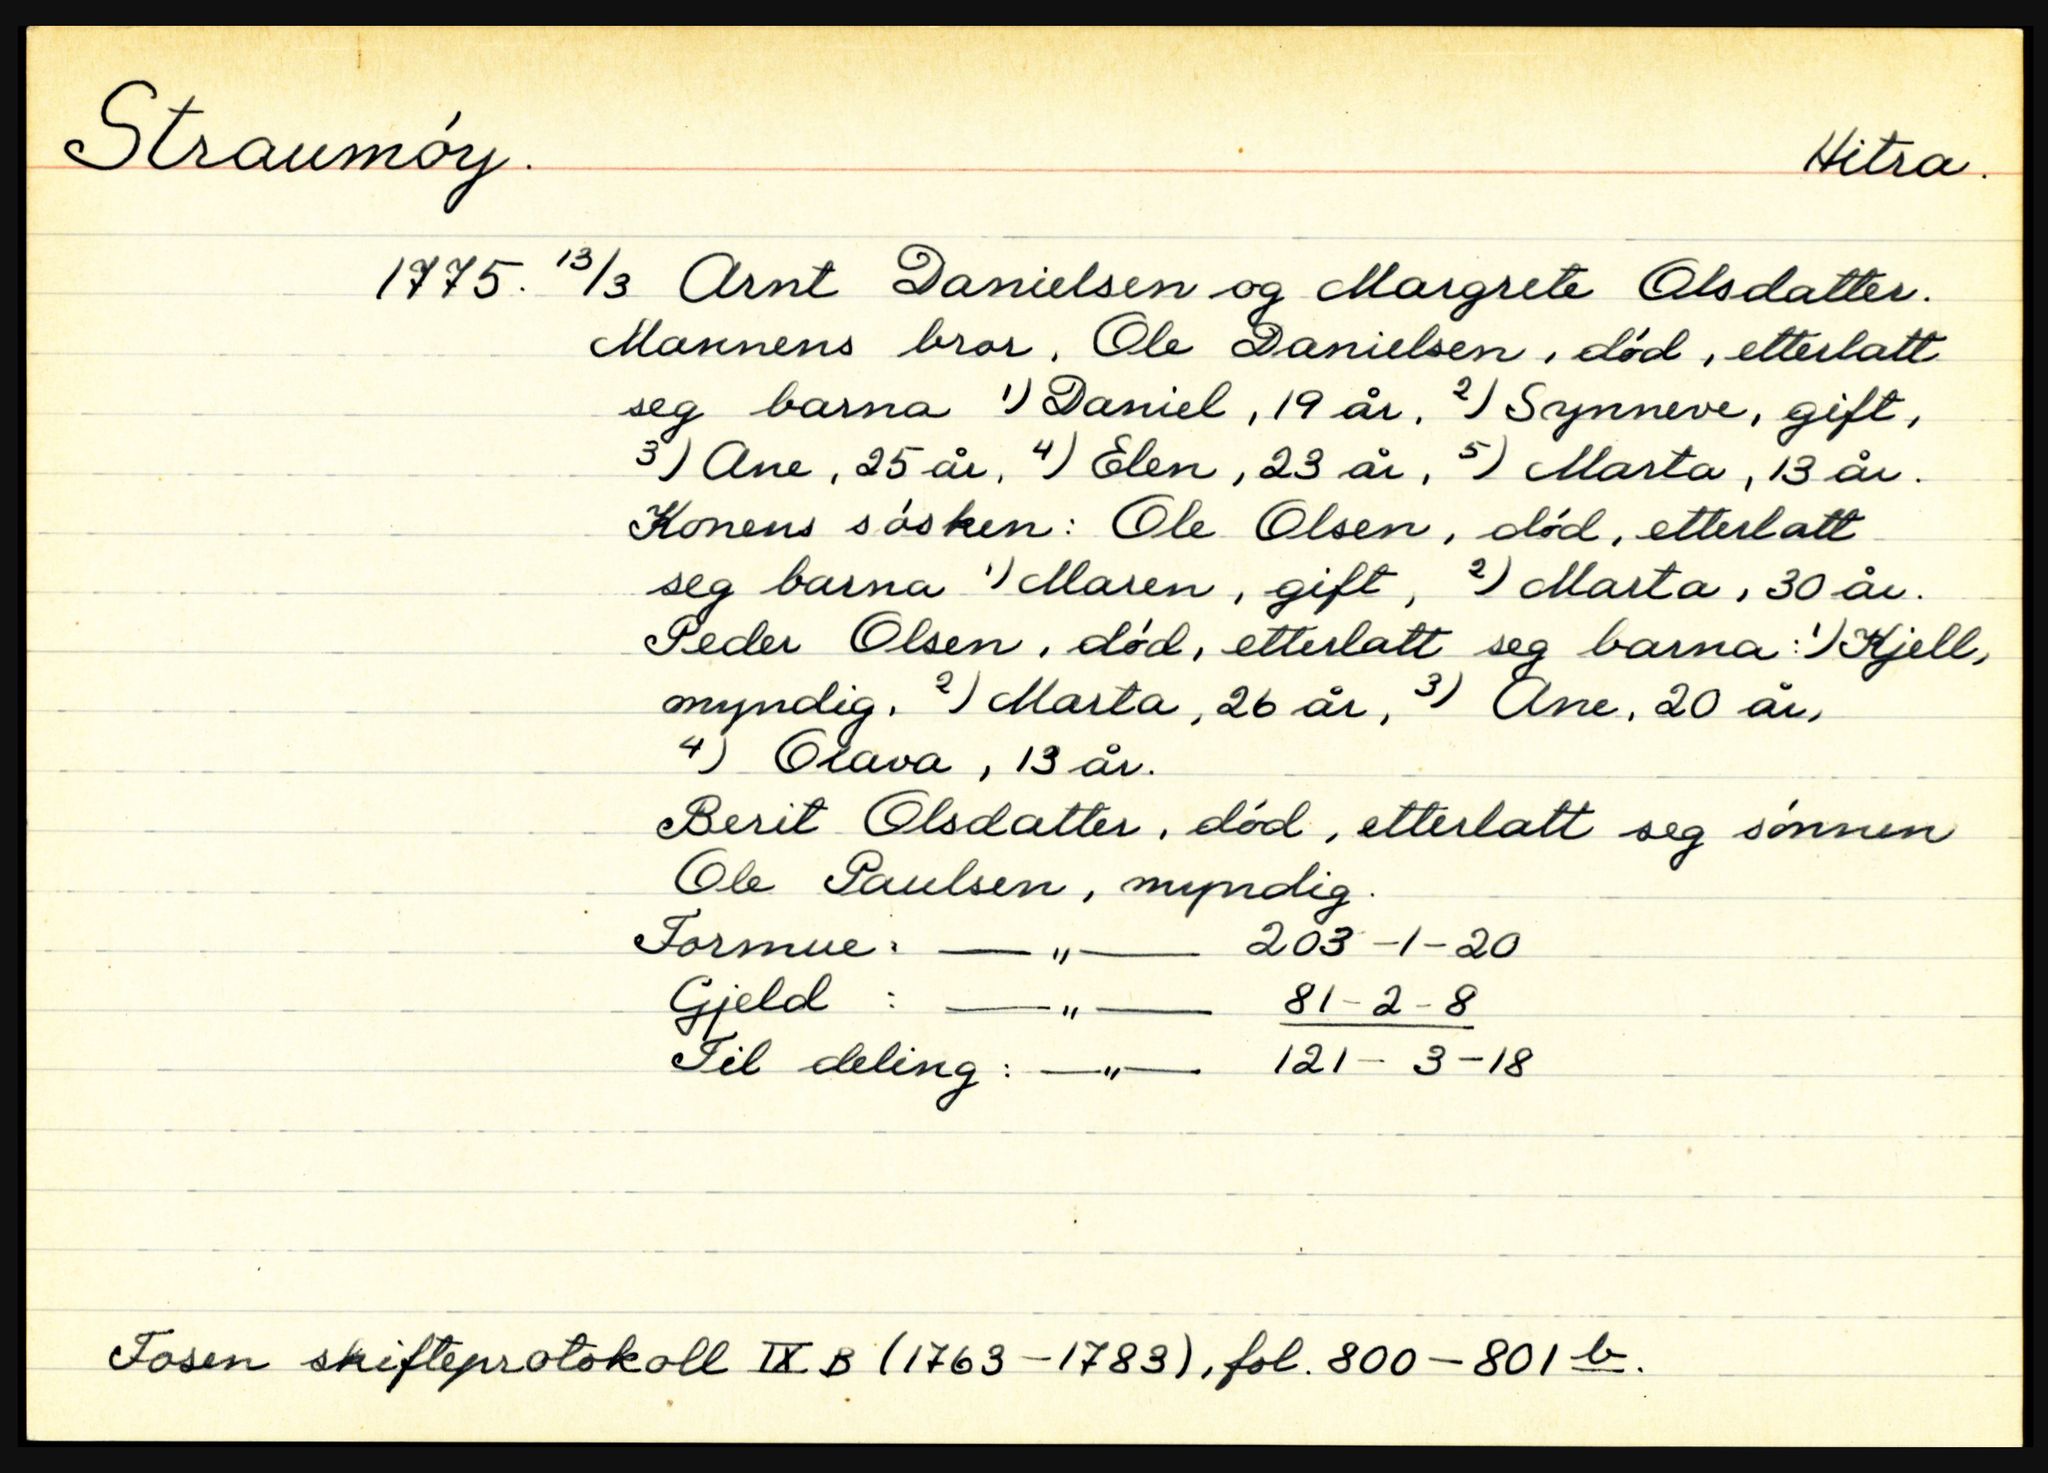 Straumóy.
Hitra.
1775. 13/3 Arnt Danielsen og Margrete Olsdatter.
Mannens bror, Ole Danielsen, död, etterlatt
seg barna 1) Daniel, 19 år, 2) Synneve, gift,
3) Ane, 25 år, 4) Elen, 23 år, 5) Marta, 13 år.
Konens sósken: Ole Olsen, död, etterlatt
seg barna 1) Maren, gift, 2) Marta, 30 år.
Peder Olsen, död, etterlatt seg barna: 1) Kjell,
myndig, 2) Marta, 26 år, 3) Ane, 20 år,
4) Olava, 13 år.
Berit Olsdatter, död, etterlatt seg sónnen
Ole Paulsen, myndig.
Formue: — „ — 203-1-20
Gjeld : — „ — 81-2-8
Til deling: — „ — 121-3-18
Fosen skifteprotokoll IX B (1763-1783), fol. 800-801 b.